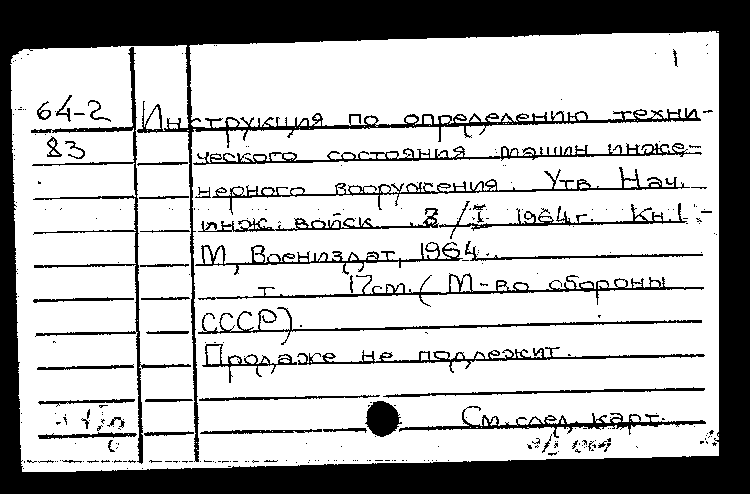 1
64-2 Инструкция по определению техни-
83 ческого состояния машин инже-
нерного вооружения. Утв. Нач.
инж. войск 8/I 1964г. Кн. 1.-
М, Воениздат, 1964.
т. 17см. (М-во обороны
СССР).
Продаже не подлежит.
См. след. карт.